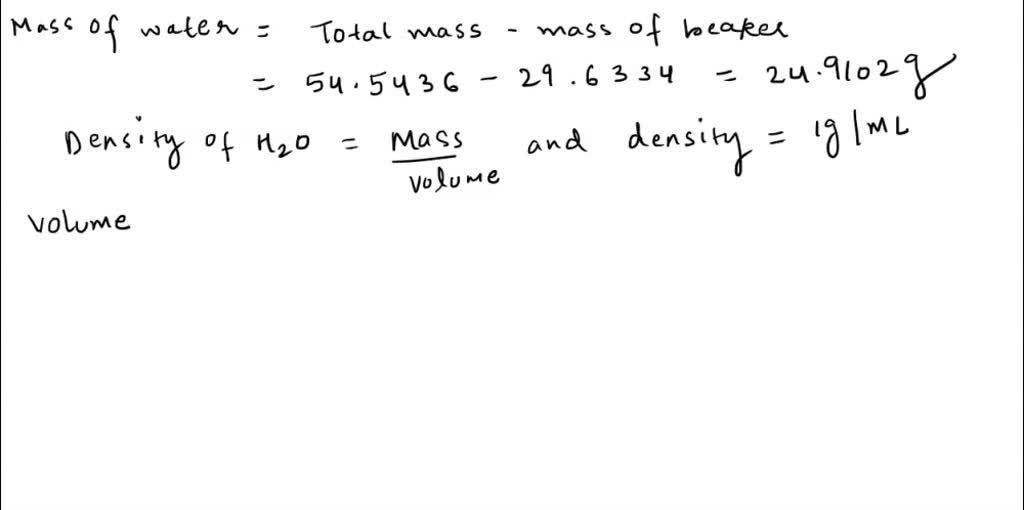 Mass of water = Total mass - mass of beaker
= 54.5436 - 29.6334 = 24.9102g
Density of H₂O = Mass/Volume and density = 1g/mL
Volume